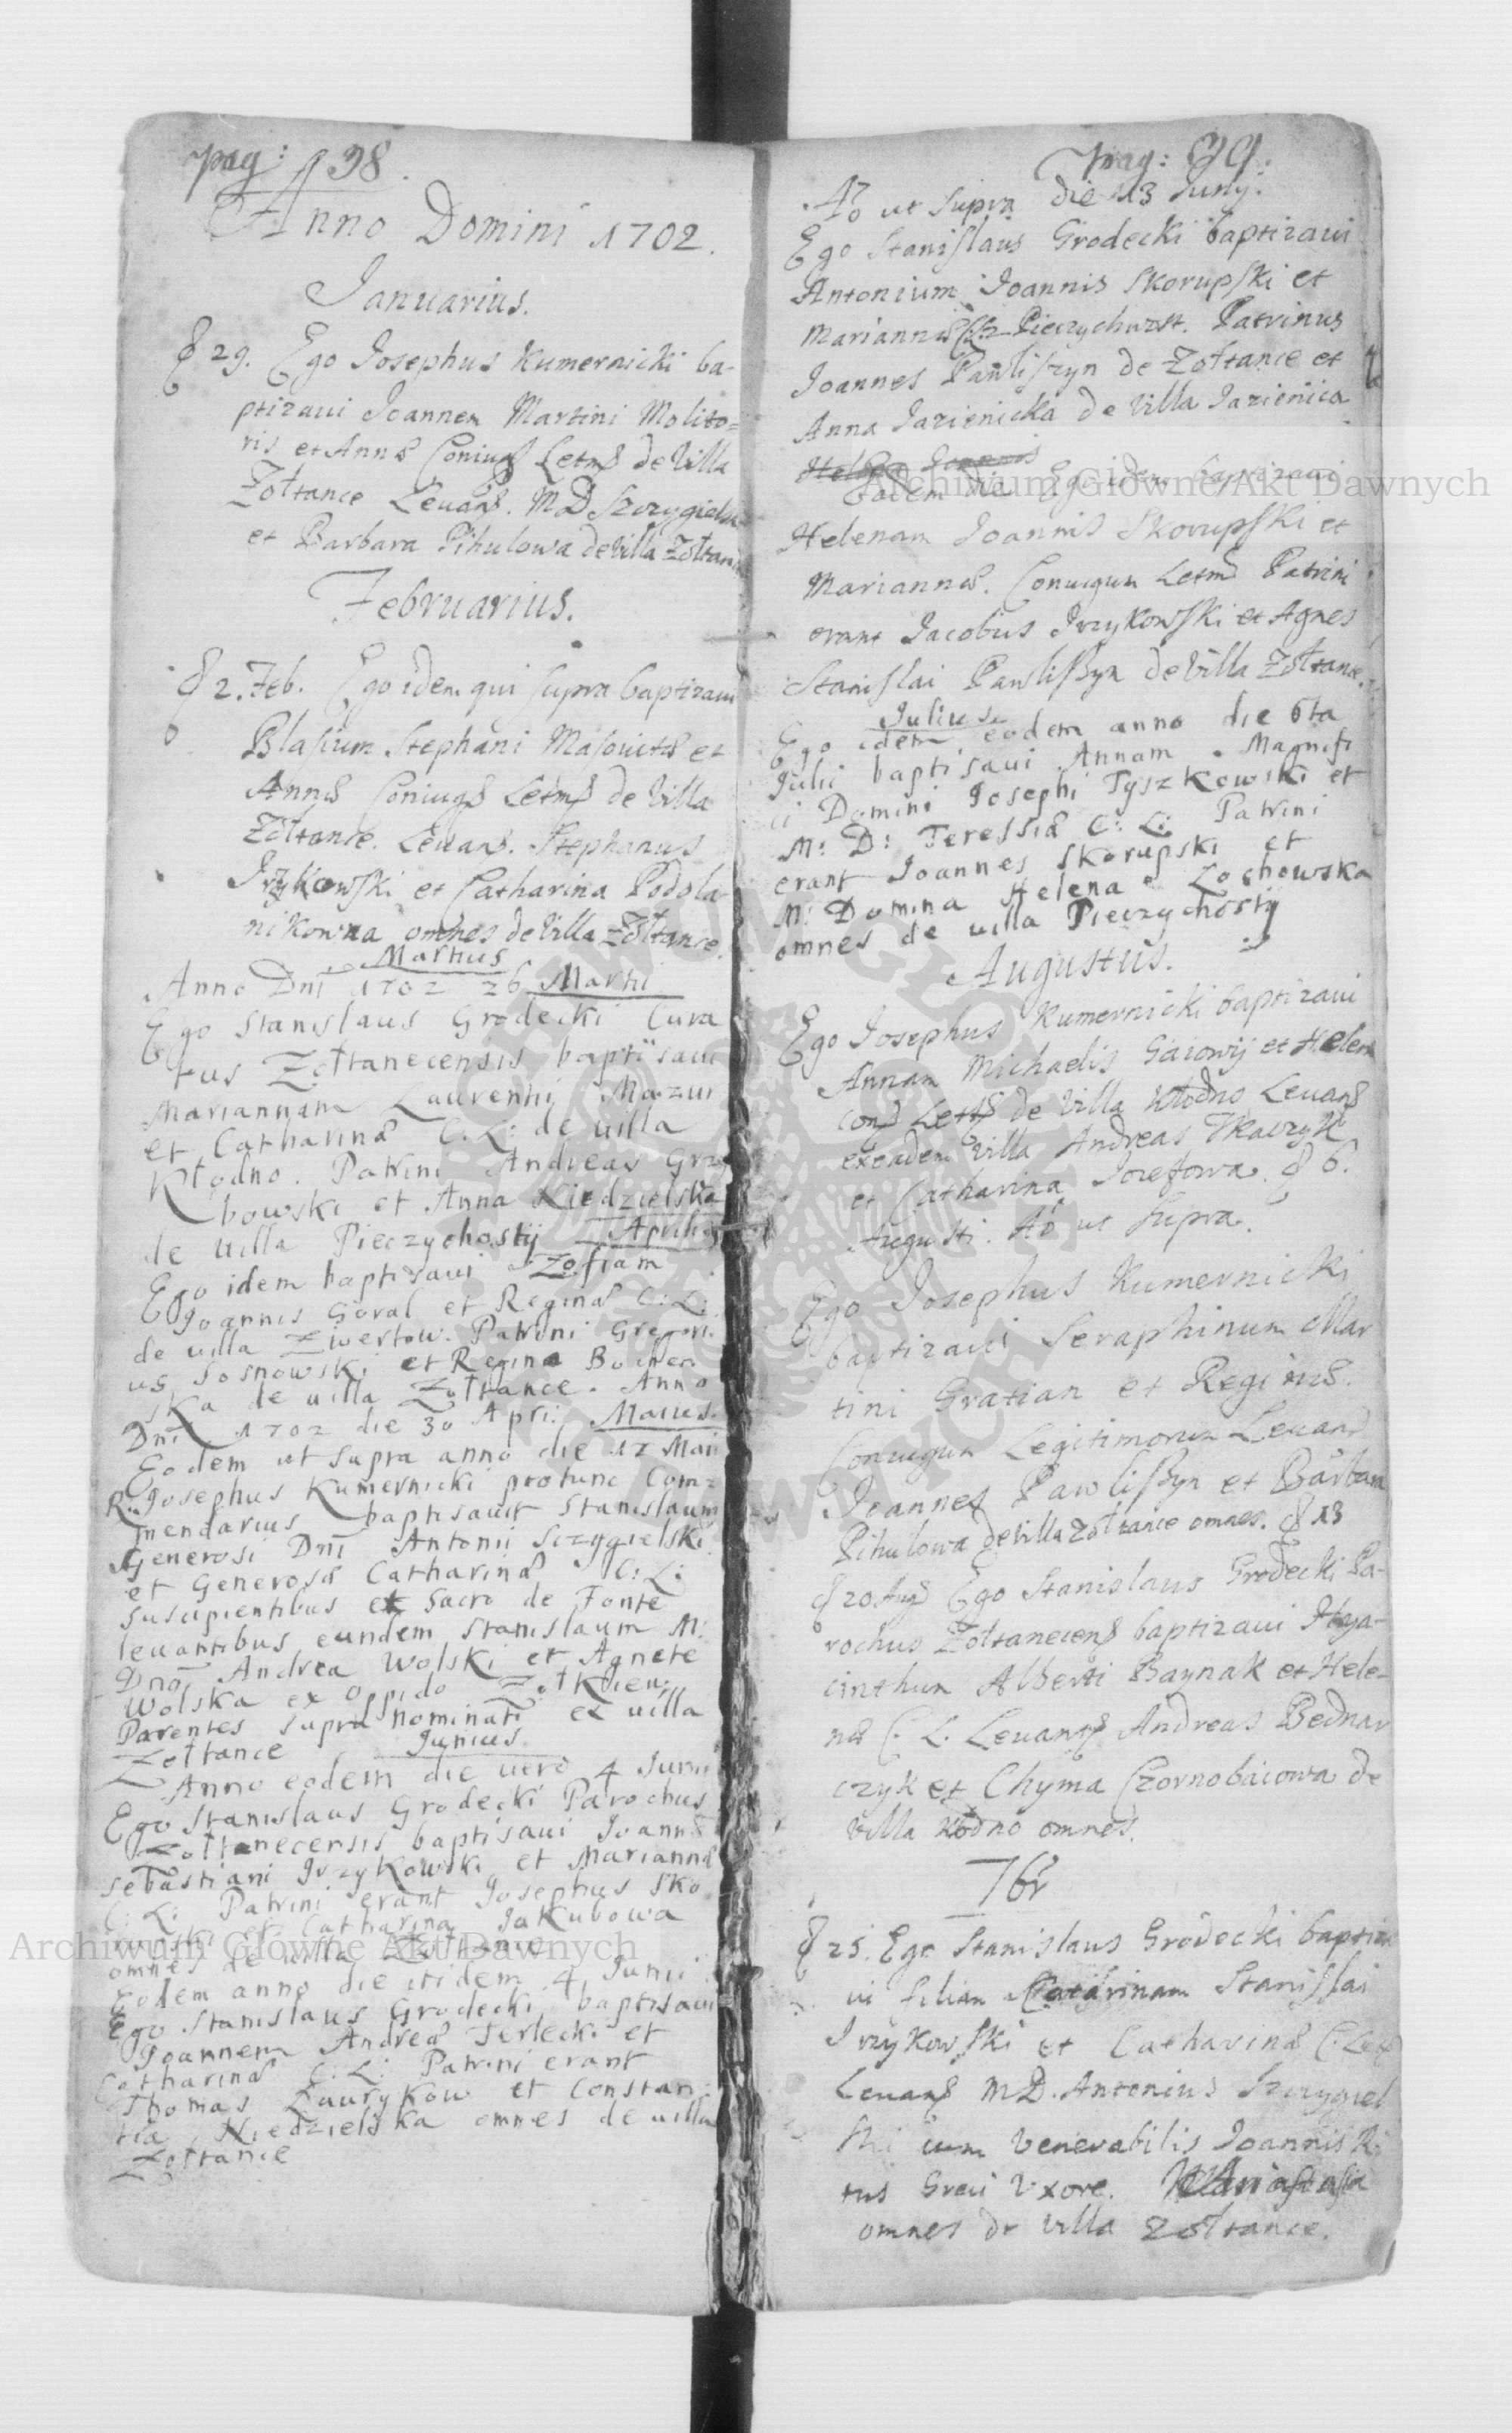 pag: 38.
Anno Domini 1702.
Januarius.
29. Ego Josephus Kumernicki ba-
ptizaui Joannem Martini Molito=
ris et Annæ Coniug Letm de Villa
Zołtance Leuan. MD Szczygielski
et Barbara Pihulowa de Villa Zołtan
Februarius.
2. Feb. Ego idem qui supra baptizaui
Blasium Stephani Masouitæ et
Annæ Coniug Letm de Villa
Zołtance. Leuan. Stephanus
Irzykowski et Catharina Podola
nikowna omnes de Villa Zołtance.
Martius
Anno Dni 1702 26 Martii
Ego Stanislaus Grodecki Cura
tus Zołtanecensis baptisaui
Mariannam Laurentii Mazur
et Catharinæ C: L: de uilla
Kłodno. Patrini Andreas Grzy
bowski et Anna Niedzielska
de uilla Pieczychosty Aprilis
Ego idem baptisaui Zofiam
Joannis Goral et Reginæ C: L:
de uilla Zwertow. Patrini Gregori
us Sosnowski et Regina Bochen
ska de uilla Zołtance. Anno
Dni 1702 die 30 Apri: Maius.
Eodem ut supra anno die 17 Maii
R: Josephus Kumernicki protunc Com=
mendarius baptisauit Stanislaum
Generosi Dni Antonii Sczygielski
et Generosæ Catharinæ C: L:
suscipientibus et Sacro de Fonte
leuantibus eundem Stanislaum M:
Dno Andrea Wolski et Agnete
Wolska ex Oppido Zołkieu:
Parentes supra nominati ex uilla
Zołtance Junius
Anno eodem die uero 4 Junii
Ego Stanislaus Grodecki Parochus
Zołtanecensis baptisaui Joann
Sebastiani Irzykowski et Mariannæ
C: L: Patrini erant Josephus Sko
rupski et Catharina Jakubowa
omnes de uilla Zołtance
Eodem anno die itidem 4 Junii
Ego Stanislaus Grodecki baptisaui
Joannem Andreæ Terlecki et
Catharinæ C: L: Patrini erant
Thomas Laurykow et Constan=
tia Niedzielska omnes de uilla
Zołtance
pag: 39.
Ao ut supra die 13 Juny.
Ego Stanislaus Grodecki baptizaui
Antonium Joannis Skorupski et
Mariannæ Pieczychwst. Patrinus
Joannes Pawliszyn de Zołtance et
Anna Jazienicka de Villa Jazienica
Eadem die Ego idem baptizaui
Helenam Joannis Skorupski et
Mariannæ. Coniugum Letm Patrini
erant Jacobus Irzykowski et Agnes
Stanislai Pawlißyn de Villa Zołtance.
Julius
Ego idem eodem anno die 6ta
Julii baptisaui Annam Magnifi
ci Domini Josephi Tyszkowski et
M: D: Teressiæ C: L: Patrini
erant Joannes Skorupski et
M: Domina Helena Zochowska
omnes de uilla Pieczychosty
Augustus.
Ego Josephus Kumernicki baptizaui
Annam Michaelis Gaiowij et Helen
conj Lett de Villa Kłodno Leuan
exeadem Villa Andreas Tkaczyk
et Catharina Jozefowa. 6.
Augusti. Ao ut supra.
Ego Josephus Kumernicki
baptizaui Seraphinum Mar
tini Gratian et Reginæ.
Coniugum Legitimorum Leuand
Joannes Pawlißyn et Barbara
Pihulowa de Villa Zołtance omnes. 13
20 Aug Ego Stanislaus Grodecki Pa-
rochus Zołtanecens baptizaui Hya-
cinthum Alberti Baynak et Hele-
næ C. L. Leuant Andreas Bednar
czyk et Chyma Czornobaiowa de
Villa Kłodno omnes.
7br
25. Ego Stanislaus Grodecki baptiza
ui filiam Catharinam Stanislai
Irzykowski et Catharinæ C. Let
Leuan MD. Antonius Szczygiel
ski cum Venerabilis Joannis Ri
tus Greci Vxore. Anastasia
omnes de Villa Zołtance.
Archiwum Główne Akt Dawnych
Archiwum Główne Akt Dawnych